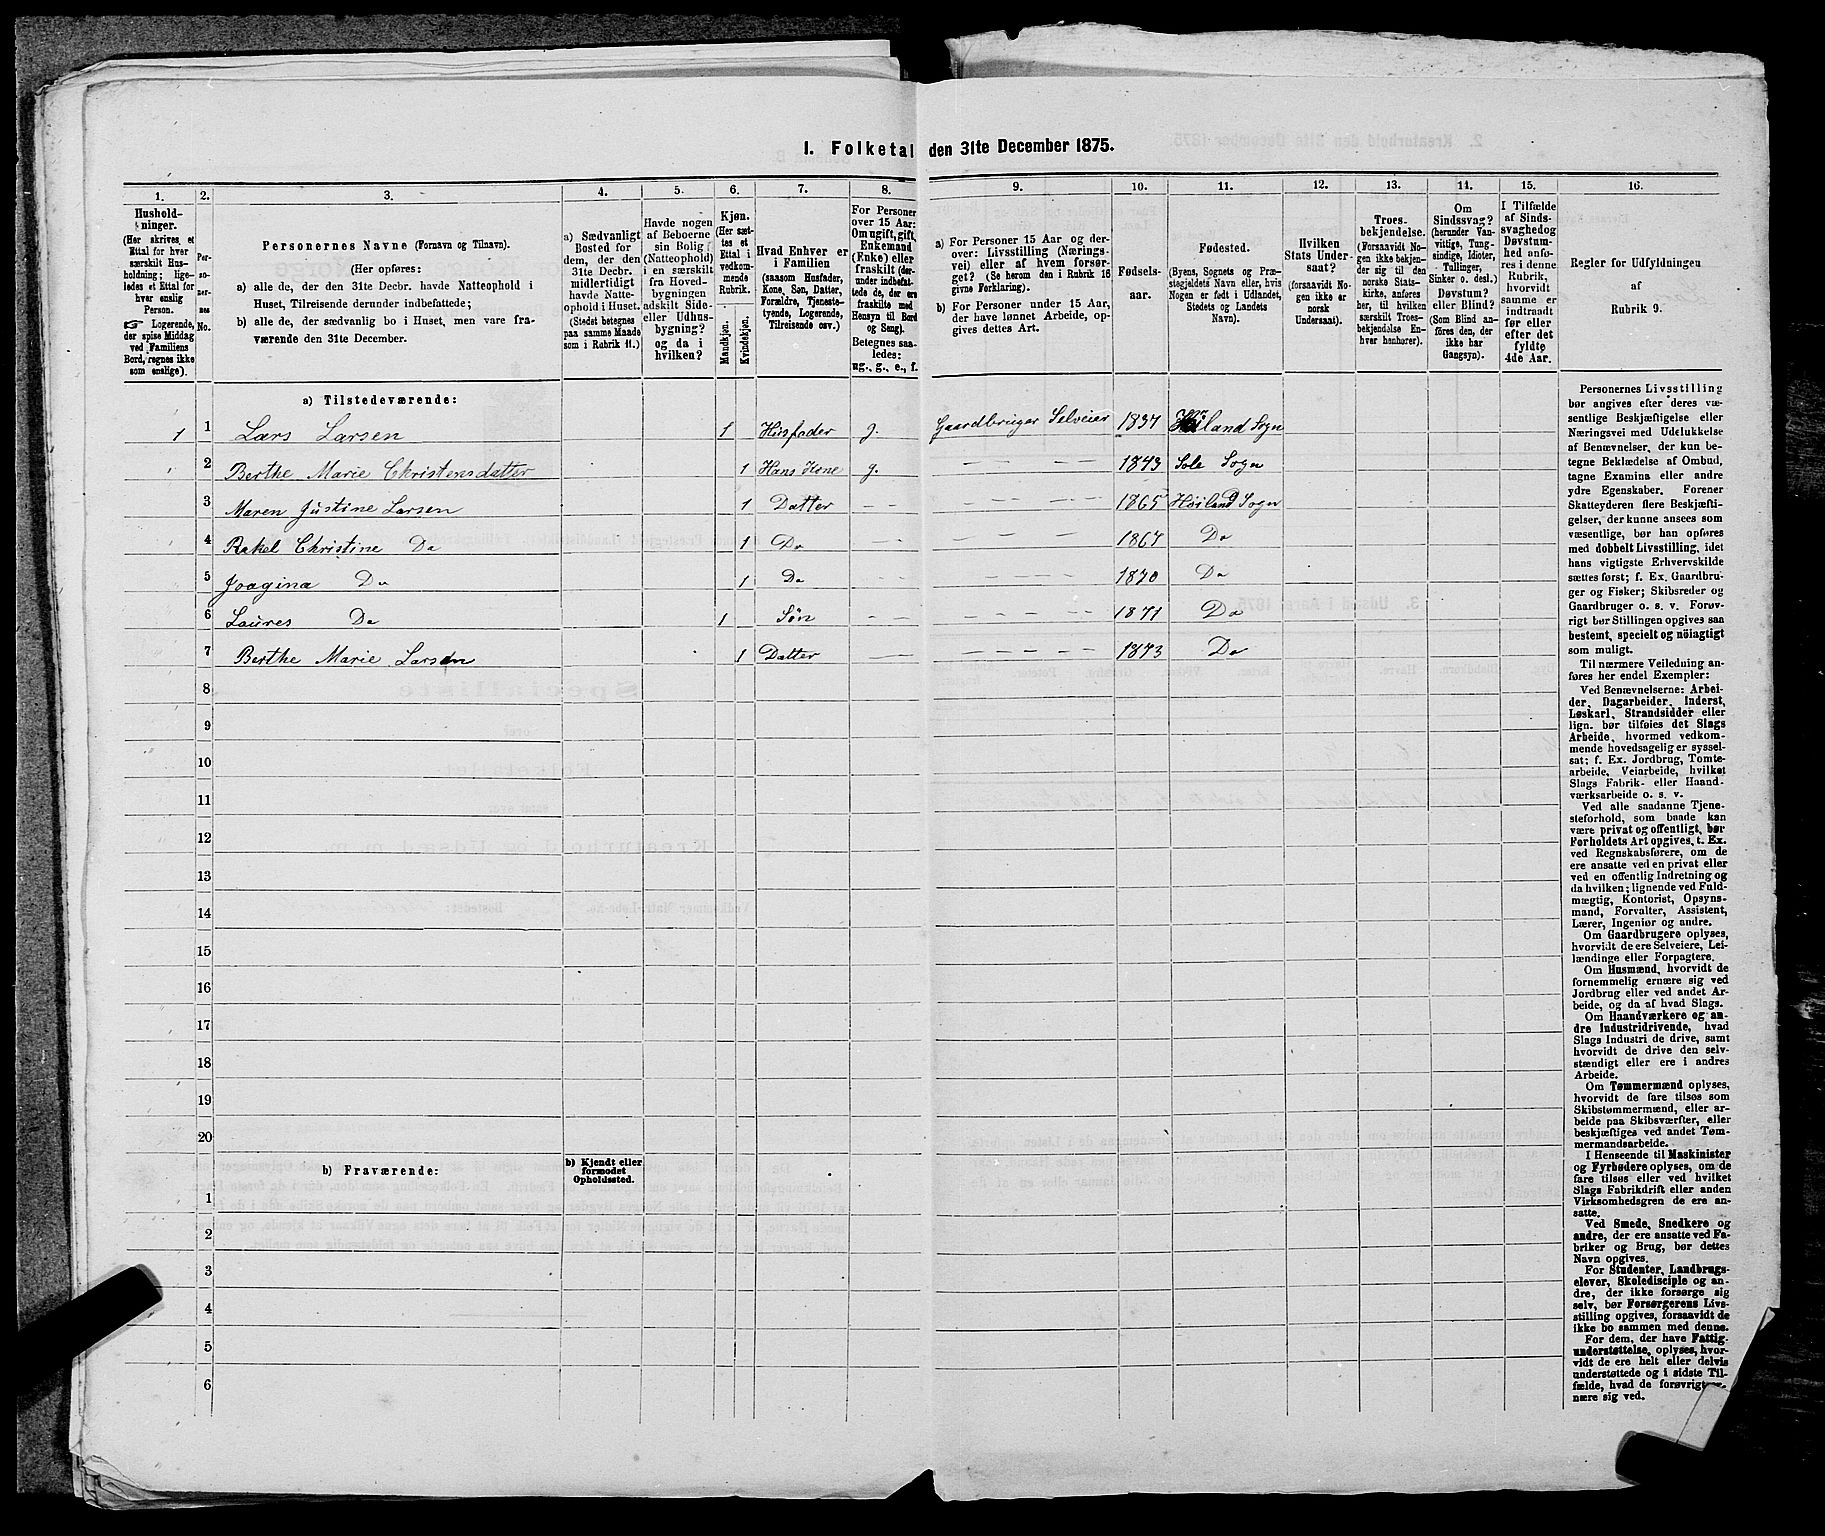 I. Folketal den 31te December 1875.
1. 2. 3. 4. 5. 6. 7. 8. 9. 10. 11. 12. 13. 14. 15. 16.
Hushold-
ninger.
(Her skrives et
Ettal for hver
særskilt Hus-
holdning; lige-
ledes et Ettal for
hver enslig
Person.
☞ Logerende,
der spise Middag
ved Familiens
Bord, regnes ikke
som enslige).
Per-
so-
ner-
nes
No.
Personernes Navne (Fornavn og Tilnavn).
(Her opføres:
a) alle de, der den 31te Decbr. havde Natteophold i
Huset, Tilreisende derunder indbefattede;
b) alle de, der sædvanlig bo i Huset, men vare fra-
værende den 31te December.
a) Sædvanligt
Bosted for
dem, der den
31te Decbr.
midlertidigt
havde Natte-
ophold i Huset.
(Stedet betegnes
paa samme Maade
som i Rubrik 11.)
Havde nogen
af Beboerne
sin Bolig
(Natteophold)
i en særskilt
fra Hoved-
bygningen
adskilt Side-
eller Udhus-
bygning?
og da i
hvilken?
Kjøn.
(Her sæt-
tes et
Ettal i
vedkom-
mende
Rubrik.
Mandkjøn.
Kvindekjøn.
Hvad Enhver er
i Familien
(saasom Husfader,
Kone, Søn, Datter,
Forældre, Tjeneste-
tyende, Logerende,
Tilreisende osv.)
For Personer
over 15 Aar:
Om ugift, gift,
Enkemand
(Enke) eller
fraskilt (der-
under indbefat-
tede de, der ere
fraskilte med
Hensyn til Bord
og Seng).
Betegnes saa-
ledes:
ug., g., e., f.
a) For Personer 15 Aar og der-
over: Livsstilling (Nærings-
vei) eller af hvem forsør-
get? (Se herom den i Rubrik 16
givne Forklaring).
b) For Personer under 15 Aar,
der have lønnet Arbeide, op-
gives dettes Art.
Fødsels-
aar.
Fødested.
(Byens, Sognets og Præ-
stegjeldets Navn eller, hvis
Nogen er født i Udlandet,
Stedets og Landets
Navn).
Hvilken
Stats Under-
saat?
(forsaavidt No-
gen ikke er
norsk
Undersaat).
Troes-
bekjendelse.
(Forsaavidt No-
gen ikke bekjen-
der sig til den
norske Stats-
kirke, anføres
her, til hvilken
særskilt Troes-
bekjendelse En-
hver henhører).
Om
Sindssvag?
(herunder Van-
vittige, Tung-
sindige, Idioter,
Tullinger,
Sinker o. desl.)
Døvstum?
eller Blind?
(Som Blind an-
føres den, der
ikke har
Gangsyn).
I Tilfælde
af Sinds-
svaghed og
Døvstum-
hed anfø-
res i denne
Rubrik,
hvorvidt
samme er
indtraadt
før eller
efter det
fyldte
4de Aar.
Regler for Udfyldningen
af
Rubrik 9.
a) Tilstedeværende:
1 1 Lars Larsen 1 Husfader g. Gaardbruger Selveier 1837 Høiland Sogn
2 Berthe Marie Christensdatter 1 Hans Kone g. — — — 1843 Sole Sogn
3 Maren Justine Larsen 1 Datter — — — — — — 1865 Høiland Sogn
4 Rakel Christine Do 1 Do — — — — — — 1867 Do
5 Joagina Do 1 Do — — — — — — 1870 Do
6 Laures Do 1 Søn — — — — — — 1871 Do
7 Berthe Marie Larsen 1 Datter — — — — — — 1873 Do
8
9
10
11
12
13
14
15
16
17
18
19
20
b) Fraværende:
b) Kjendt eller
formodet
Opholdssted.
1
2
3
4
5
6
Personernes Livsstilling
bør angives efter deres væ-
sentlige Beskjæftigelse eller
Næringsvei med Udelukkelse
af Benævnelser, der kun be-
tegne Beklædelse af Ombud,
tagne Examina eller andre
ydre Egenskaber. Forener
Skatteyderen flere Beskjæfti-
gelser, der kunne ansees som
væsentlige, bør han opføres
med dobbelt Livsstilling, idet
hans vigtigste Erhvervskilde
sættes først; f. Ex. Gaardbru-
ger og Fisker; Skibsreder og
Gaardbruger o. s. v. Forøv-
rigt bør Stillingen opgives saa
bestemt, specielt og nöiagtigt
som muligt.
Til nærmere Veiledning an-
føres her endel Exempler:
Ved Benævnelserne: Arbei-
der, Dagarbeider, Inderst,
Løskarl, Strandsidder eller
lign. bør tilføies det Slags
Arbeide, hvormed vedkom-
mende hovedsagelig er syssel-
sat; f. Ex. Jordbrug, Tomte-
arbeide, Veiarbeide, hvilket
Slags Fabrik- eller Haand-
værksarbeide o. s. v.
Ved alle saadanne Tjene-
steforhold, som baade kan
være privat og offentligt, bør
Forholdets Art opgives, t. Ex.
ved Regnskabsførere, om de
ere ansatte ved en privat eller
ved en offentlig Indretning og
da hvilken; lignende ved Fuld-
mægtig, Kontorist, Opsyns-
mand, Forvalter, Assistent,
Lærer, Ingeniør og andre.
Om Gaardbrugere oplyses,
hvorvidt de ere Selveiere, Lei-
lændinge eller Forpagtere.
Om Husmænd, hvorvidt de
fornemmelig ernære sig ved
Jordbrug eller ved andet Ar-
beide, og da af hvad Slags.
Om Haandværkere og an-
dre Industridrivende, hvad
Slags Industri de drive, samt
hvorvidt de drive den selv-
stændigt eller ere i andres
Arbeide.
Om Tømmermænd oplyses,
hvorvidt de fare tilsøs som
Skibstømmermænd, eller ar-
beide paa Skibsværfter, eller
beskjæftiges ved andet Tøm-
mermandsarbeide.
I Henseende til Maskinister
og Fyrbødere oplyses, om de
fare tilsøs eller ved hvilket
Slags Fabrikdrift eller anden
Virksomhedsgren de ere an-
satte.
Ved Smede, Snedkere og
andre, der ere ansatte ved Fa-
briker og Brug, bør dettes
Navn opgives.
For Studenter, Landbrugs-
elever, Skoledisciple og an-
dre, der ikke forsørge sig
selv, bør Forsørgerens Livs-
stilling opgives, forsaavidt de
ikke bo sammen med denne.
For dem, der have Fattig-
understøttelse, oplyses, hvor-
vidt de ere helt eller delvis
understøttede og i sidste Til-
fælde, hvad de forøvrigt er-
nære sig ved.